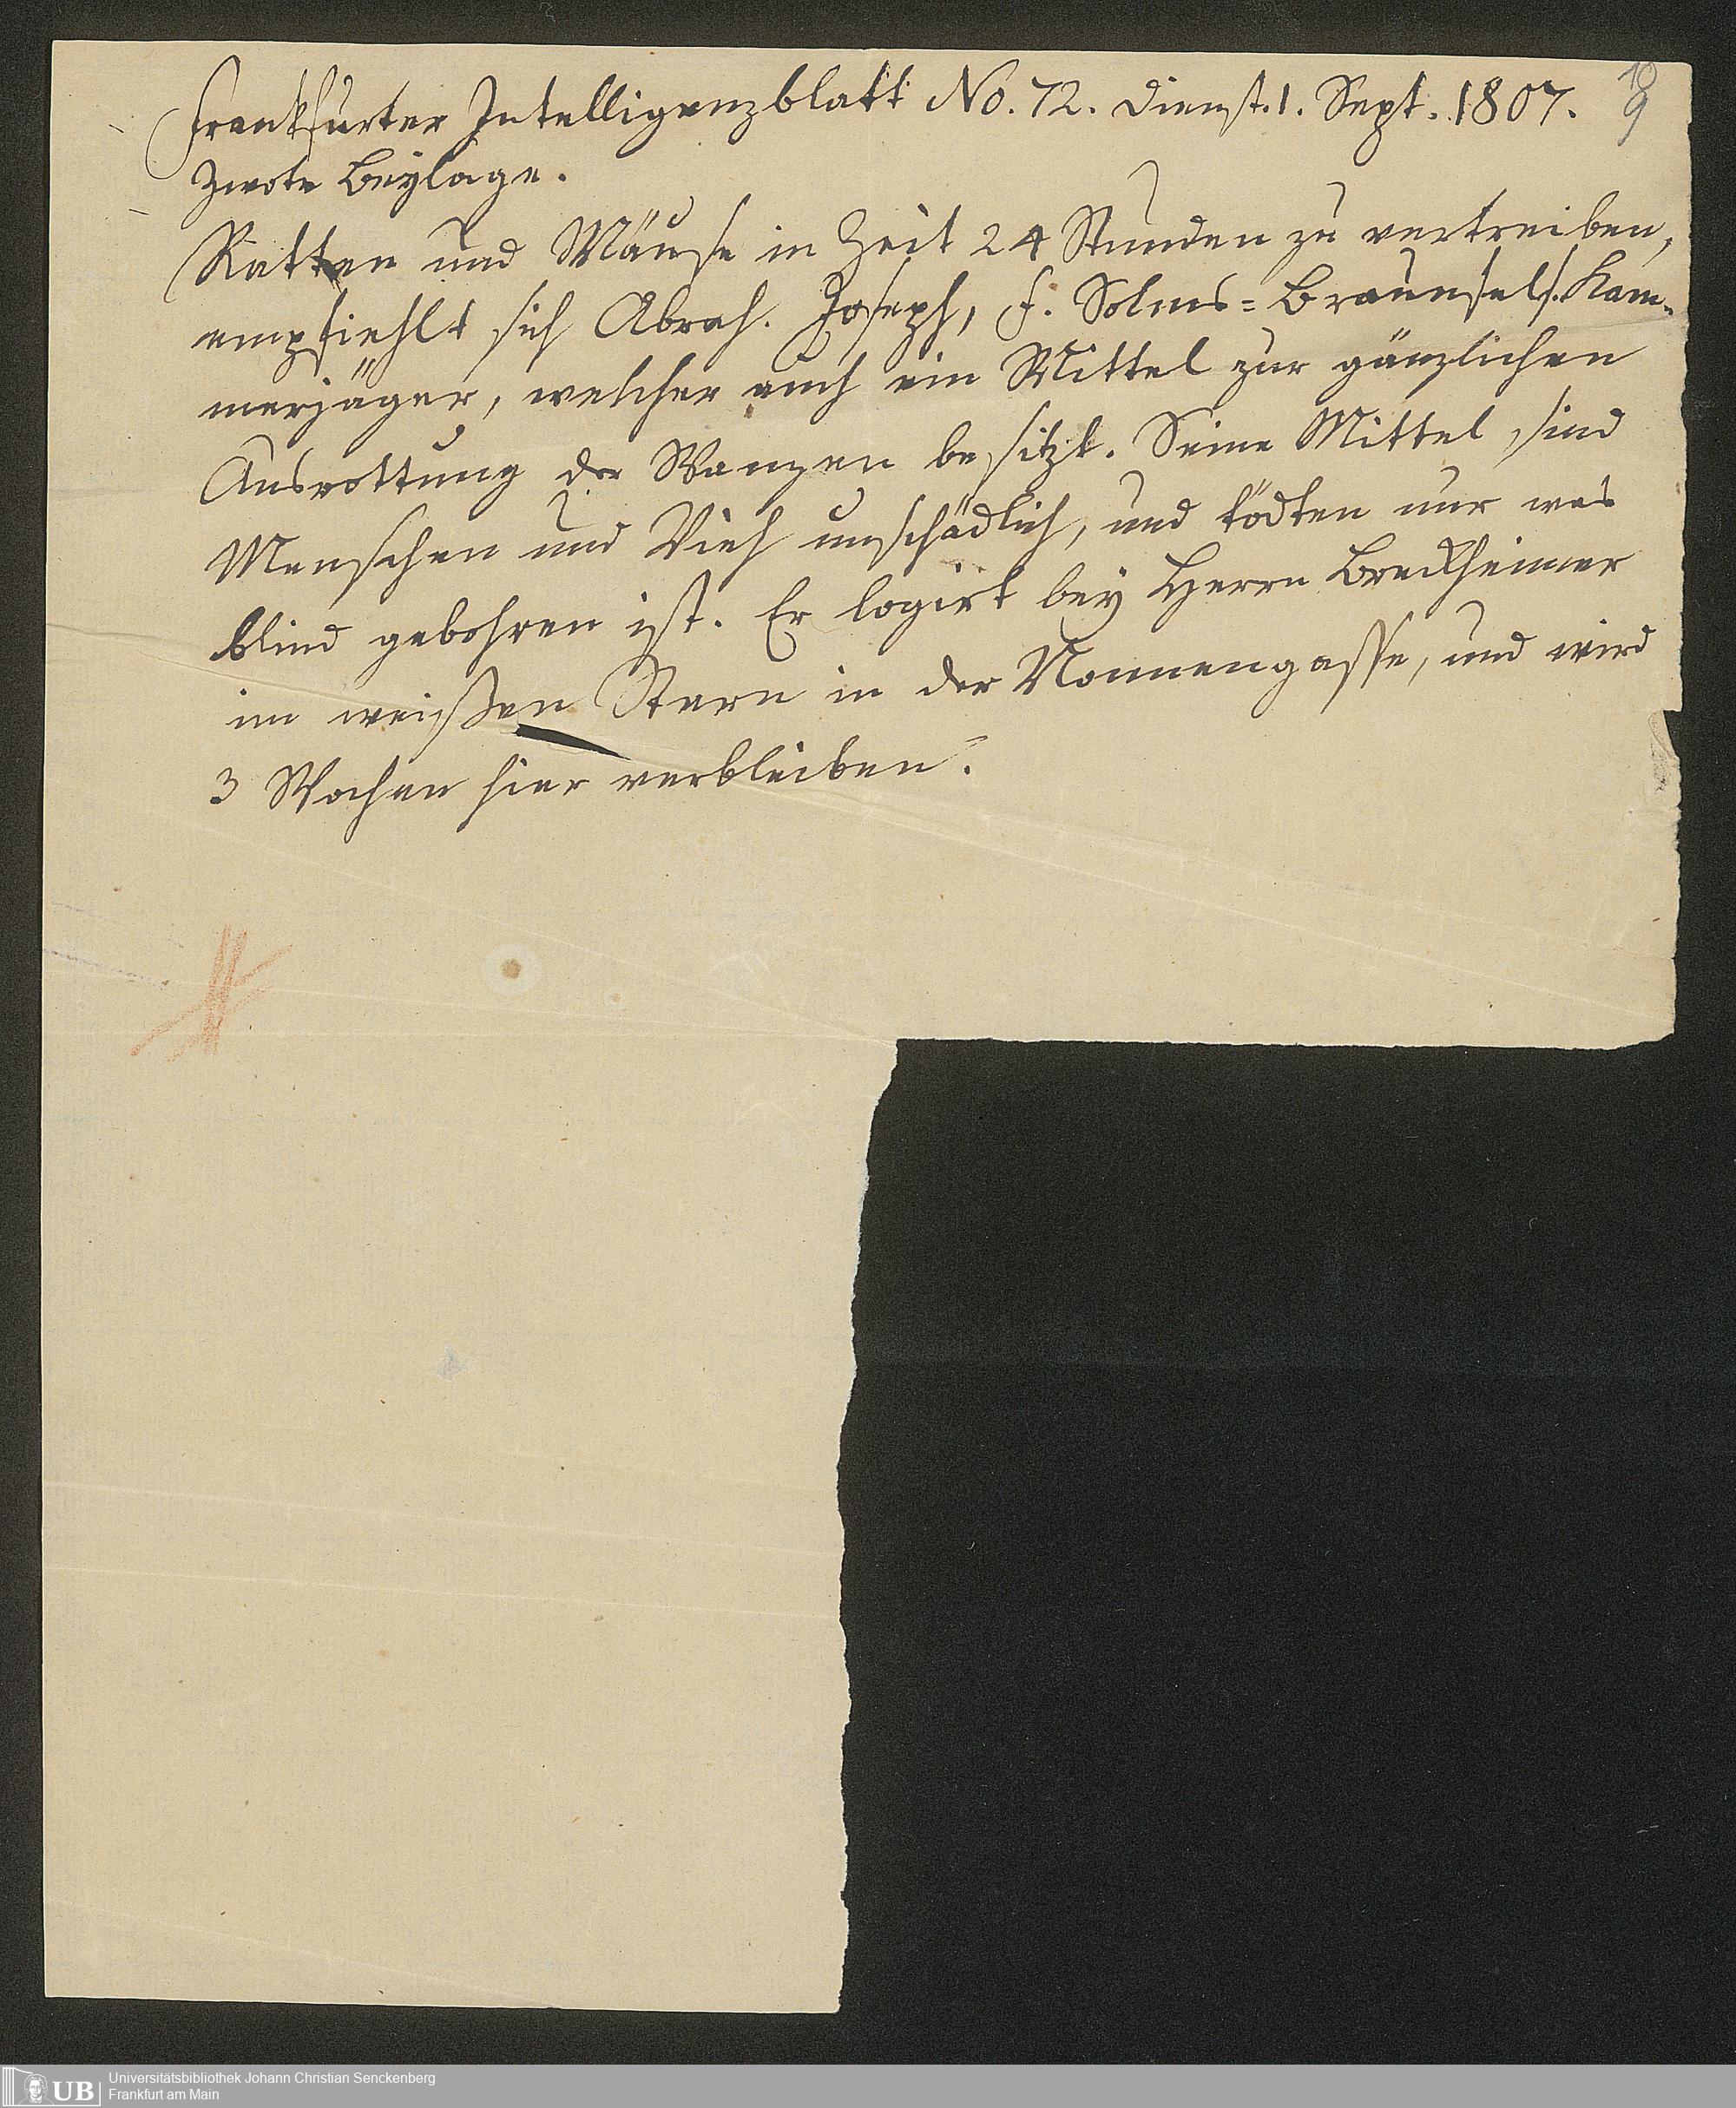 Frankfurter Intelligenzblatt No. 72. Dienst. 1. Sept. 1807.
Zwote Beylage.
Ratten und Mäuse in Zeit 24 Stunden zu vertreiben,
empfiehlt sich Abrah. Joseph, F. Solms=Braunfels. Kam-
merjäger, welcher auch ein Mittel zur gänzlichen
Ausrottung der Wanzen besitzt. Seine Mittel sind
Menschen und Vieh unschädlich, und tödten nur was
blind gebohren ist. Er logirt bey Herrn Breckheimer
im weißen Stern in der Nonnengasse, und wird
3 Wochen hier verbleiben.
UB
Universitätsbibliothek Johann Christian Senckenberg
Frankfurt am Main